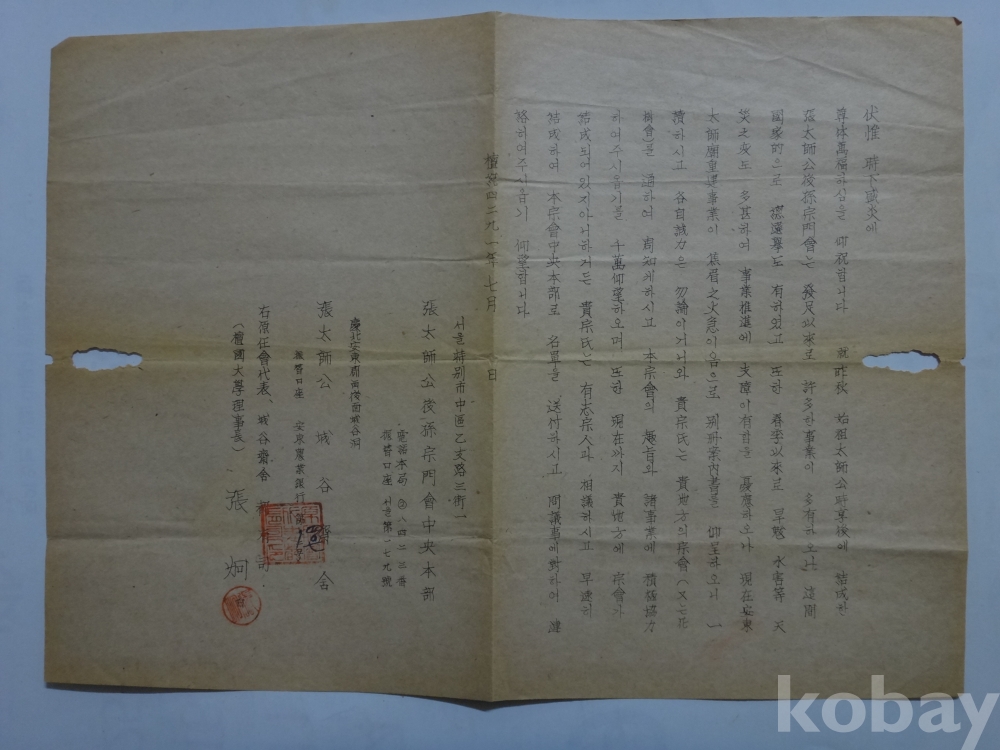 伏惟 時下盛炎에
尊体萬福하심을 仰祝합니다 就昨秋 始祖太師公時享後에 結成한
張太師公後孫宗門會는 發足以來로 許多한事業이 多有하오나 這間
國家的으로 總選擧도 有하였고 또한 春季以來로 旱愍 水害等 天
災之変도 多甚하여 事業推進에 支障이有함을 憂慮하오나 現在安東
太師廟重建事業이 焦眉之火急이옴으로 別冊案內書를 仰呈하오니 一
積하시고 各自誠力은 勿論이거니와 貴宗氏는 貴地方의宗會(又는花
樹會)를 通하여 周知케하시고 本宗會의 趣旨와 諸事業에 積極協力
하여주시옵기를 千萬仰望하오며 또한 現在까지 貴地方에 宗會가
結成되어있지아니하거든 貴宗氏는 有志宗人과 相議하시고 早速히
結成하여 本宗會中央本部로 名單을 送付하시고 同議事에對하여 連
絡하여주시옵기 仰望합니다
檀紀四二九一年 七月 日
서울特别市中區乙支路三街一
張太師公後孫宗門會中央本部
電話本局 ② 八四二三番
振替口座 서울第一七九號
慶北安東郡西後面城谷洞
張太師公 城谷齋舍
振替口座 安東農業銀行第 號
右原任會代表、城谷齋舍 司
(檀國大學理事長) 張 炯
kobay